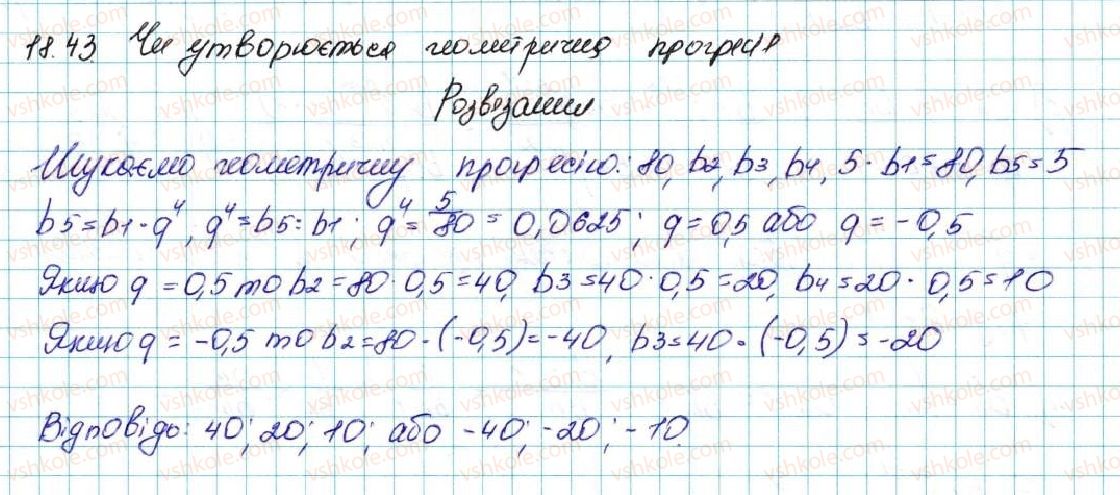 18.43 Чи утворюється геометрична прогресія
Розвязання
Шукаємо геометричну прогресію: 80, b2, b3, b4, 5 · b1 = 80, b5 = 5
b5 = b1 · q⁴, q⁴ = b5 : b1; q⁴ = 5/80 = 0,0625; q = 0,5 або q = -0,5
Якщо q = 0,5 то b2 = 80 · 0,5 = 40, b3 = 40 · 0,5 = 20, b4 = 20 · 0,5 = 10
Якщо q = -0,5 то b2 = 80 · (-0,5) = -40, b3 = 40 · (-0,5) = -20
Відповідь: 40; 20; 10; або -40; -20; -10.